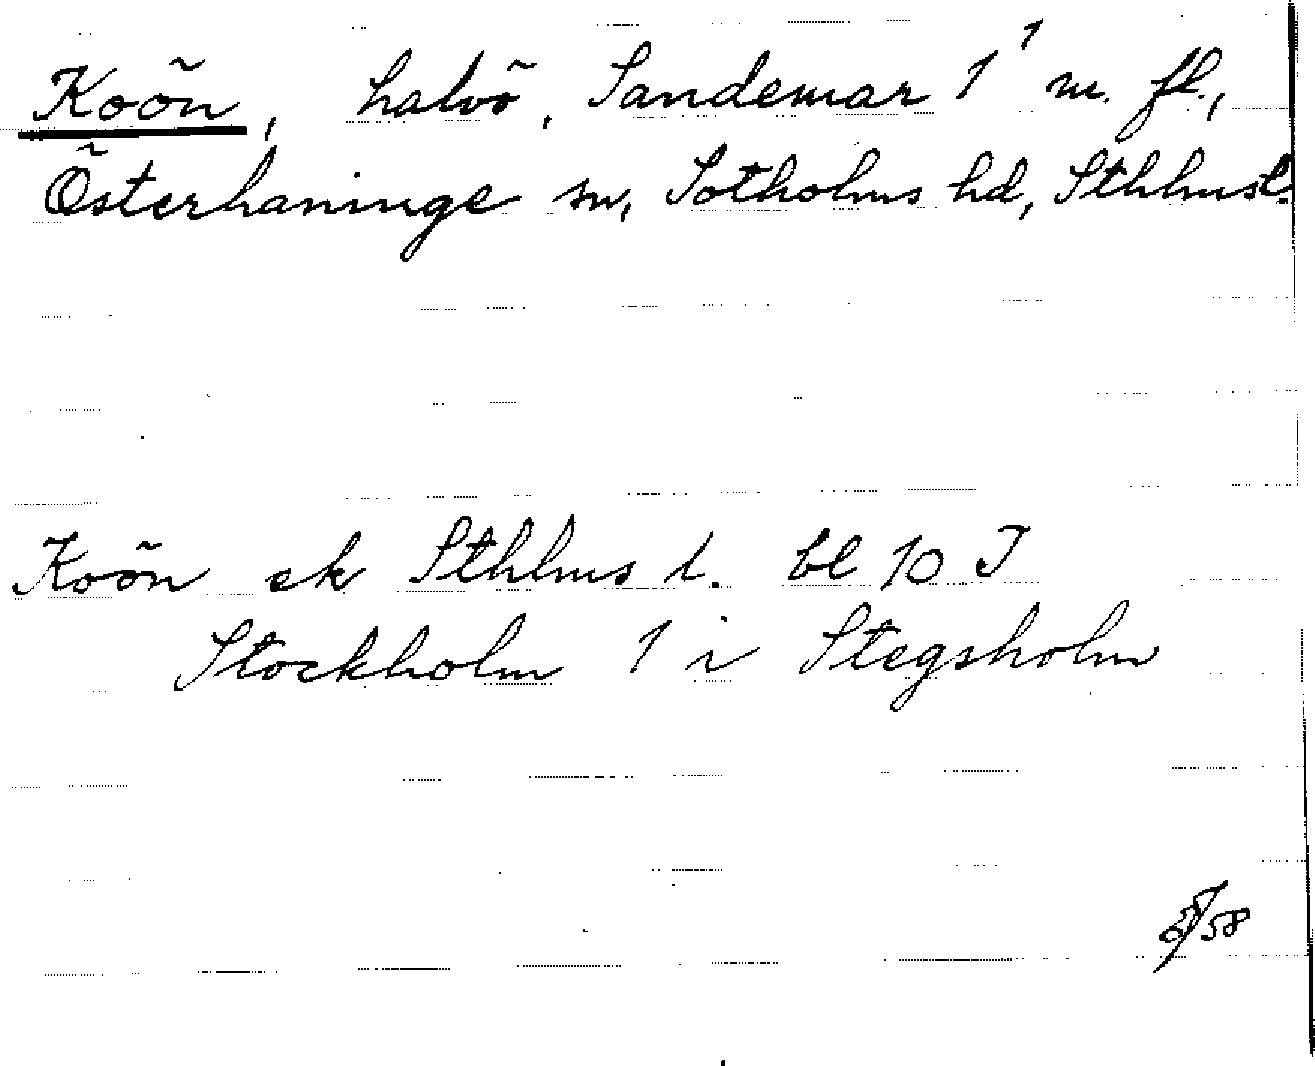 Koön, halvö, Sandemar 1¹ m. fl.,
Österhaninge sn, Sotholms hd, Sthlmsl.
Koön ek Sthlms l. bl 10 I
Stockholm 1 i Stegsholm
/58